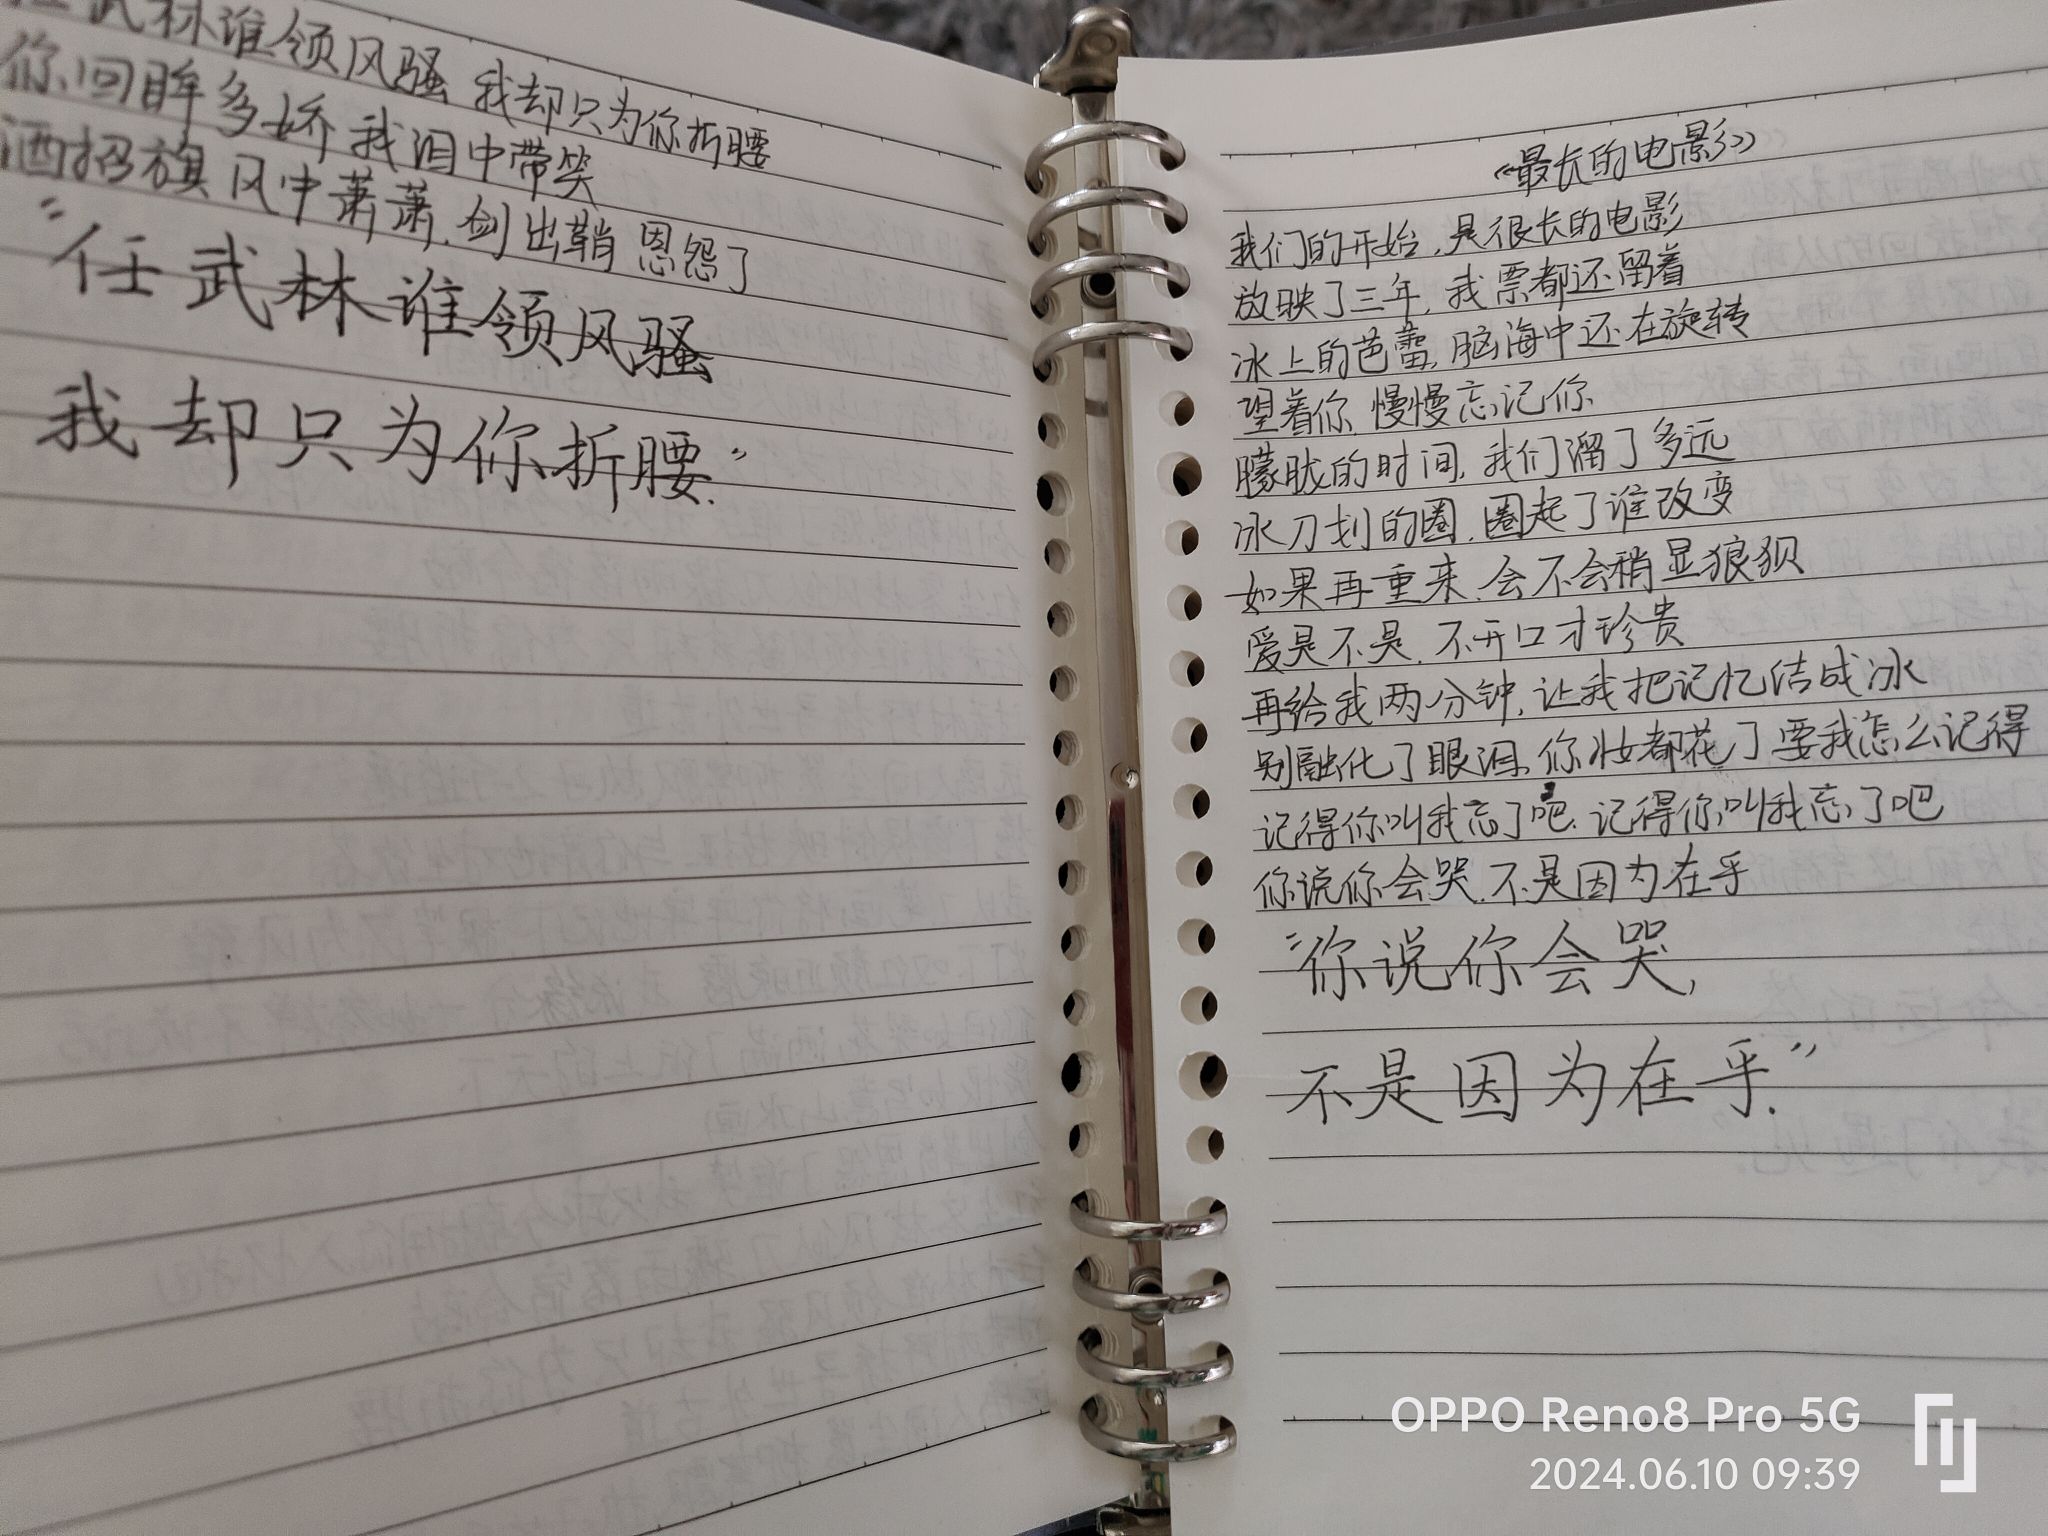 任武林谁领风骚 我却只为你折腰
你回眸多娇 我泪中带笑
酒招旗风中萧萧.剑出鞘 恩怨了
“任武林谁领风骚
我却只为你折腰.”
《最长的电影》
我们的开始,是很长的电影
放映了三年,我票都还留着
冰上的芭蕾,脑海中还在旋转
望着你,慢慢忘记你
朦胧的时间,我们溜了多远
冰刀划的圈,圈起了谁改变
如果再重来,会不会稍显狼狈
爱是不是,不开口才珍贵
再给我两分钟,让我把记忆结成冰
别融化了眼泪,你妆都花了要我怎么记得
记得你叫我忘了吧,记得你叫我忘了吧
你说你会哭,不是因为在乎
“你说你会哭,
不是因为在乎.”
OPPO Reno8 Pro 5G
2024.06.10 09:39